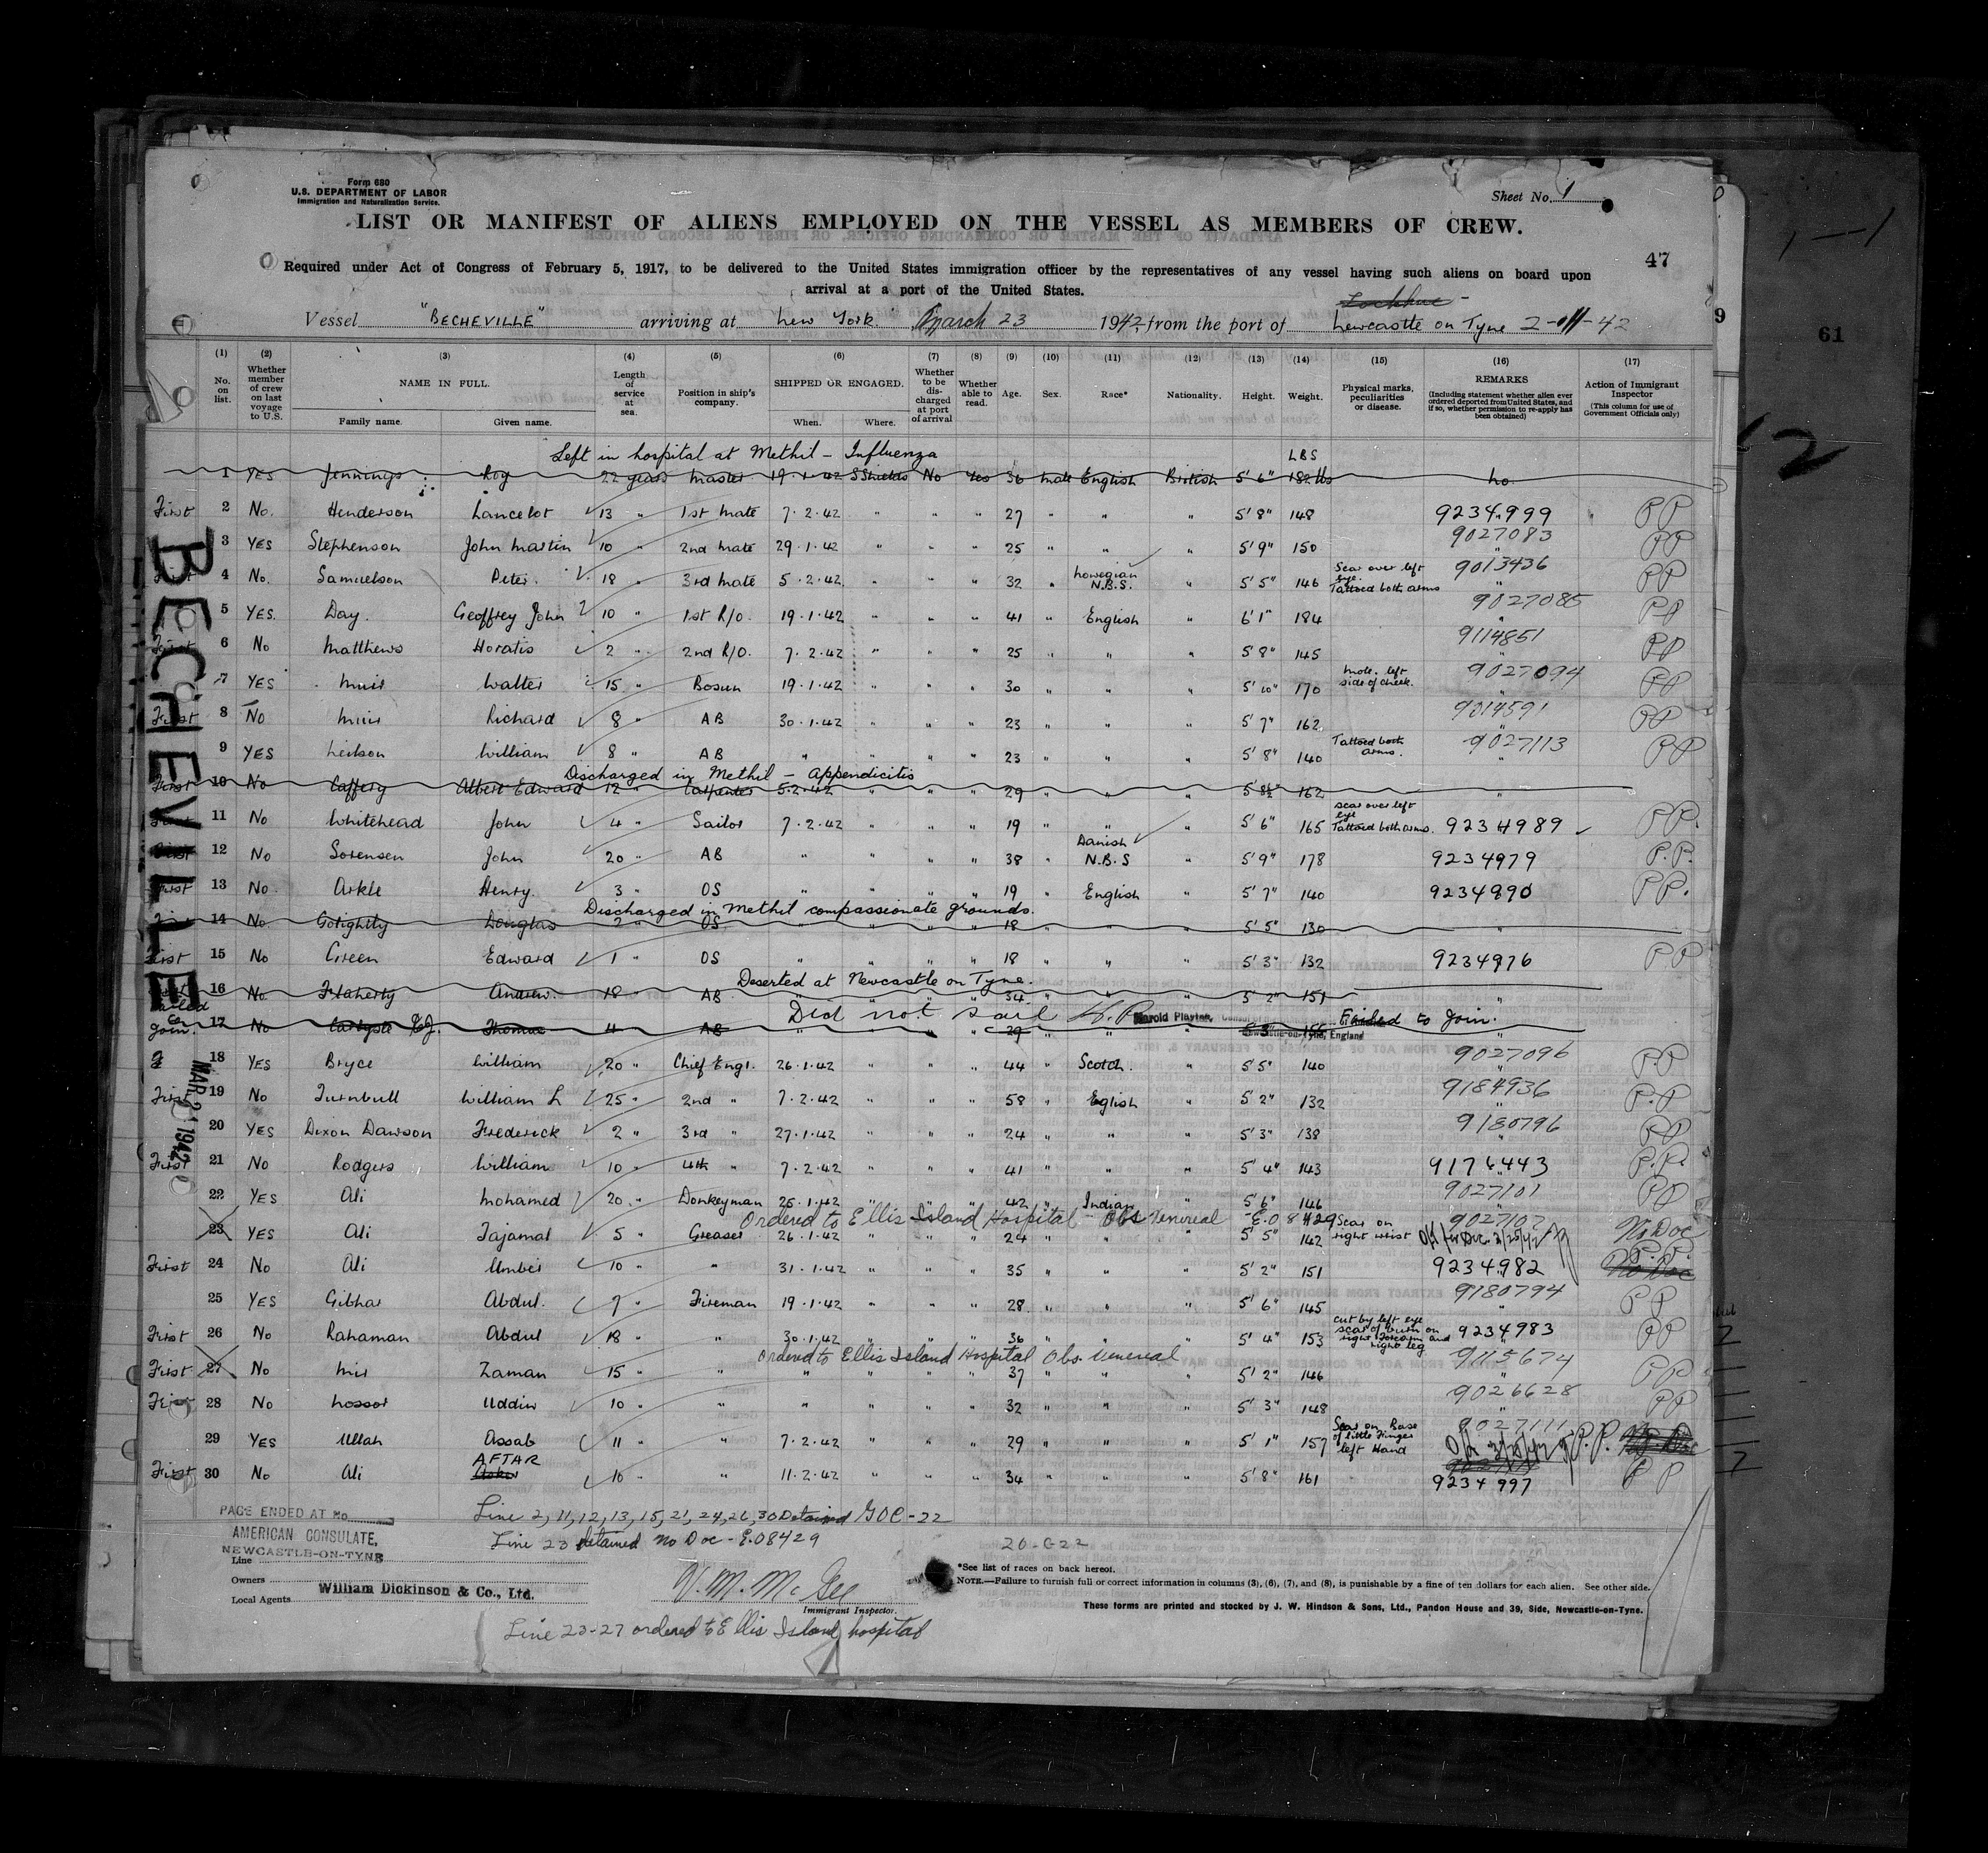 Form 680
U.S. DEPARTMENT OF LABOR
Immigration and Naturalization Service.
Sheet No. 1
LIST OR MANIFEST OF ALIENS EMPLOYED ON THE VESSEL AS MEMBERS OF CREW.
47
Required under Act of Congress of February 5, 1917, to be delivered to the United States immigration officer by the representatives of any vessel having such aliens on board upon
arrival at a port of the United States.
Vessel "BECHEVILLE" arriving at New York March 23 1942, from the port of Newcastle on Tyne 2-11-42
9
61
2
(1) No. on list.
(2) Whether member of crew on last voyage to U.S.
(3) NAME IN FULL. Family name. Given name.
(4) Length of service at sea.
(5) Position in ship's company.
(6) SHIPPED OR ENGAGED. When. Where.
(7) Whether to be discharged at port of arrival
(8) Whether able to read.
(9) Age.
(10) Sex.
(11) Race*
(12) Nationality.
(13) Height.
(14) Weight.
(15) Physical marks, peculiarities or disease.
(16) REMARKS (Including statement whether alien ever ordered deported from United States, and if so, whether permission to re-apply has been obtained)
(17) Action of Immigrant Inspector (This column for use of Government Officials only)
BECHEVILLE
MAR 2 1942
Left in hospital at Methil - Influenza LBS
1 YES Jennings Roy 22 years Master 19.1.42 S Shields No Yes 36 Male English British 5' 6" 182 lbs No.
First 2 No. Henderson Lancelot 13 " 1st Mate 7.2.42 " " " 27 " " " 5' 8" 148 9234999 PP
3 YES Stephenson John Martin 10 " 2nd Mate 29.1.42 " " " 25 " " " 5' 9" 150 9027083 PP
First 4 No. Samuelson Peter. 18 " 3rd Mate 5.2.42 " " " 32 " Norwegian N.B.S. " 5' 5" 146 Scar over left eye. Tattoed both arms 9013436 PP
5 YES. Day. Geoffrey John 10 " 1st R/O. 19.1.42 " " " 41 " English " 6' 1" 184 9027085 PP
First 6 No Matthews Horatio 2 " 2nd R/O. 7.2.42 " " " 25 " " " 5' 8" 145 9114851 PP
7 YES Muir Walter 15 " Bosun 19.1.42 " " " 30 " " " 5' 10" 170 mole. left side of cheek. 9027094 PP
First 8 No Muir Richard 8 " AB 30.1.42 " " " 23 " " " 5' 7" 162 9014591 PP
9 YES Neilson William 8 " AB " " " " 23 " " " 5' 8" 140 Tattoed both arms. 9027113 PP
Discharged in Methil - Appendicitis
First 10 No Caffery Albert Edward 12 " Carpenter 5.2.42 " " " 29 " " " 5' 8½" 162 "
11 No Whitehead John 4 " Sailor 7.2.42 " " " 19 " " " 5' 6" 165 scar over left eye Tattoed both arms. 9234989 PP.
First 12 No Sorensen John 20 " AB " " " " 38 " Danish N.B.S " 5' 9" 178 9234979 P.P.
First 13 No. Arkle Henry. 3 " OS " " " " 19 " English " 5' 7" 140 9234890 PP.
Discharged in Methil compassionate grounds.
14 No. Golightly Douglas 2 " OS " " " " 18 " " " 5' 5" 130 "
First 15 No Green Edward 1 " OS " " " " 18 " " " 5' 3" 132 9234976 PP
Deserted at Newcastle on Tyne.
16 No. Flaherty Andrew. 18 " AB " " " " 34 " " " 5' 2" 151 "
Failed to Join. 17 No Carlyste Thomas 4 " AB Did not sail H.P. Harold Playter, Newcastle-on-Tyne, England 29 Failed to Join.
18 YES Bryce William 20 " Chief Engr. 26.1.42 " " " 44 " Scotch. " 5' 5" 140 9027096 P.P
First 19 No Turnbull William L 25 " 2nd " 7.2.42 " " " 58 " Eglish " 5' 2" 132 9184936 P.P
20 YES Dixon Dawson Frederick 2 " 3rd " 27.1.42 " " " 24 " " " 5' 3" 138 9180796 PP
First 21 No Rodgers William 10 " 4th " 7.2.42 " " " 41 " " " 5' 4" 143 9176443 P.P.
22 YES Ali Mohamed 20 " Donkeyman 25.1.42 " " " 42 " Indian " 5' 6" 146 9027101 PP
Ordered to Ellis Island Hospital Obs Venereal E.08429
23 YES Ali Tajamal 5 " Greaser 26.1.42 " " " 24 " " " 5' 5" 142 Scar on right wrist 9027107 No Doc
First 24 No Ali Umber 10 " " 31.1.42 " " " 35 " " " 5' 2" 151 9234982 P.P. No Doc
25 YES Gibhar Abdul. 7 " Fireman 19.1.42 " " " 28 " " " 5' 6" 145 9180794 PP
First 26 No Rahaman Abdul 18 " " 30.1.42 " " " 36 " " " 5' 4" 153 cut by left eye scar of burn on right forearm and right leg 9234983 PP
Ordered to Ellis Island Hospital Obs Venereal
First 27 No Mir Zaman 15 " " " " " " 37 " " " 5' 2" 146 9115674 PP
First 28 No Nossor Uddin 10 " " " " " " 32 " " " 5' 3" 148 9026628 PP
29 YES Ullah Assab 11 " " 7.2.42 " " " 29 " " " 5' 1" 157 Scar on Base of little Finger left Hand 9027111 P.P.
First 30 No Ali AFTAR 10 " " 11.2.42 " " " 34 " " " 5' 8" 161 9234997 PP
Line 2, 11, 12, 13, 15, 21, 24, 26, 30 Detained GOC-22
Line 23 detained No Doc - E.08429
PAGE ENDED AT No.
AMERICAN CONSULATE,
NEWCASTLE-ON-TYNE
Line
Owners
Local Agents William Dickinson & Co., Ltd.
V. M. McGee
Immigrant Inspector.
*See list of races on back hereof.
NOTE.—Failure to furnish full or correct information in columns (3), (6), (7), and (8), is punishable by a fine of ten dollars for each alien. See other side.
These forms are printed and stocked by J. W. Hindson & Sons, Ltd., Pandon House and 39, Side, Newcastle-on-Tyne.
Line 23-27 ordered to Ellis Island hospital